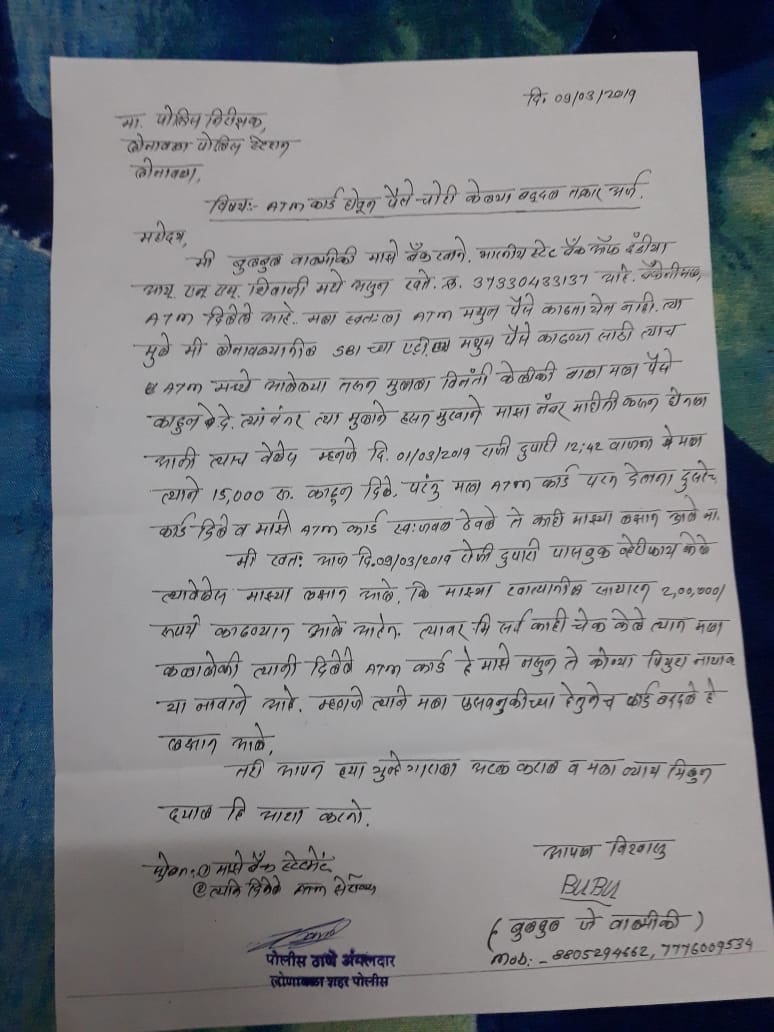 दि. 09/03/2019
मा. पोलिस निरीक्षक,
लोनावळा पोलिस स्टेशन
लोनावळा,
विषय:- ATM कार्ड घेवून पैसे चोरी केल्या बद्दल तक्रार अर्ज.
महोदय,
मी बुलबुल वाल्मीकी माझे बँक खाते, भारतीय स्टेट बँक ऑफ इंडीया
आय. एन. एस. शिवाजी मधे असुन खाते. क्र. 37330433137 आहे.
ATM दिलेले आहे. मला स्वतःला ATM मधुन पैसे काढता येत नाही. त्या
मुळे मी लोनावळ्यातील SBI च्या एटीएम मधुन पैसे काढण्या साठी त्याच
ATM मध्ये आलेल्या तरुन मुलाला विनंती केलीकी बाळा मला पैसे
काढुन दे. त्यांनंतर त्या मुलाने हसत मुखाने माझा नंबर माहीती करुन घेतला
आनी त्याच वेळेस म्हनजे दि. 01/03/2019 रोजी दुपारी 12:42 वाजता मला
त्याने 15,000 रु. काढुन दिले. परंतु मला ATM कार्ड परत देताना दुसरेच
कार्ड दिले व माझे ATM कार्ड स्वःजवळ ठेवले ते काही माझ्या लक्षात आले ना.
मी स्वतः आज दि.09/03/2019 रोजी दुपारी पासबुक व्हेरीफाय केले
त्यावेळेस माझ्या लक्षात आले. कि माझ्या खात्यातील साधारन 2,00,000/
रुपये काढण्यात आले आहेत. त्यावर मि सर्व काही चेक केले त्यात मला
कळालेकी त्यानी दिलेले ATM कार्ड हे माझे नसुन ते कोण्या
या नावाने आहे. म्हणजे त्याने मला फसवनुकीच्या हेतुनेच कार्ड बद्दले हे
लक्षात आले,
तरी आपन ह्या गुन्हेगाराला अटक कराल व मला न्याय मिळुन
दयाल हि आशा करतो.
आपला विश्वासु
माझे बँक स्टेटमेंट
② त्याने दिलेले ATM
BUBU
(बुलबुल जे वाल्मीकी)
Mob:- 8805294662, 7776009534
पोलीस ठाणे अंमलदार
लोणावळा शहर पोलीस